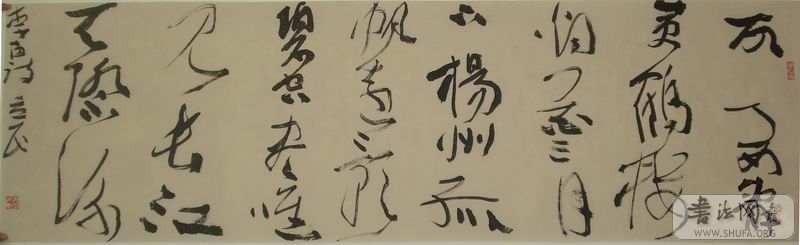 故人西辞
黄鶴楼
烟花三月
下楊州孤
帆遠影
碧空尽唯
見長江
天際流
李白詩 立民
书法网
WWW.SHUFA.ORG